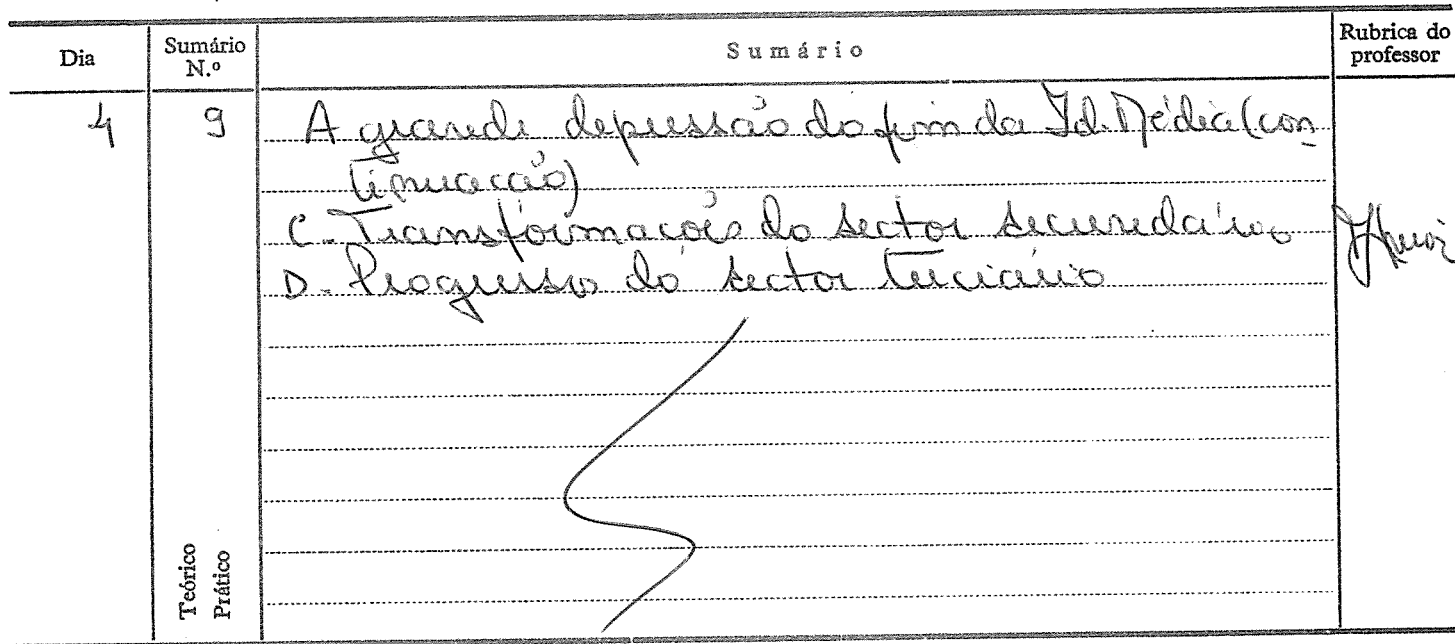 Dia
Sumário N.º
Sumário
Rubrica do professor
4
9
A grande depressão do fim da Id. Média (con
tinuação)
C - Transformações do sector secundário
D - Progresso do sector terciário
Teórico
Prático